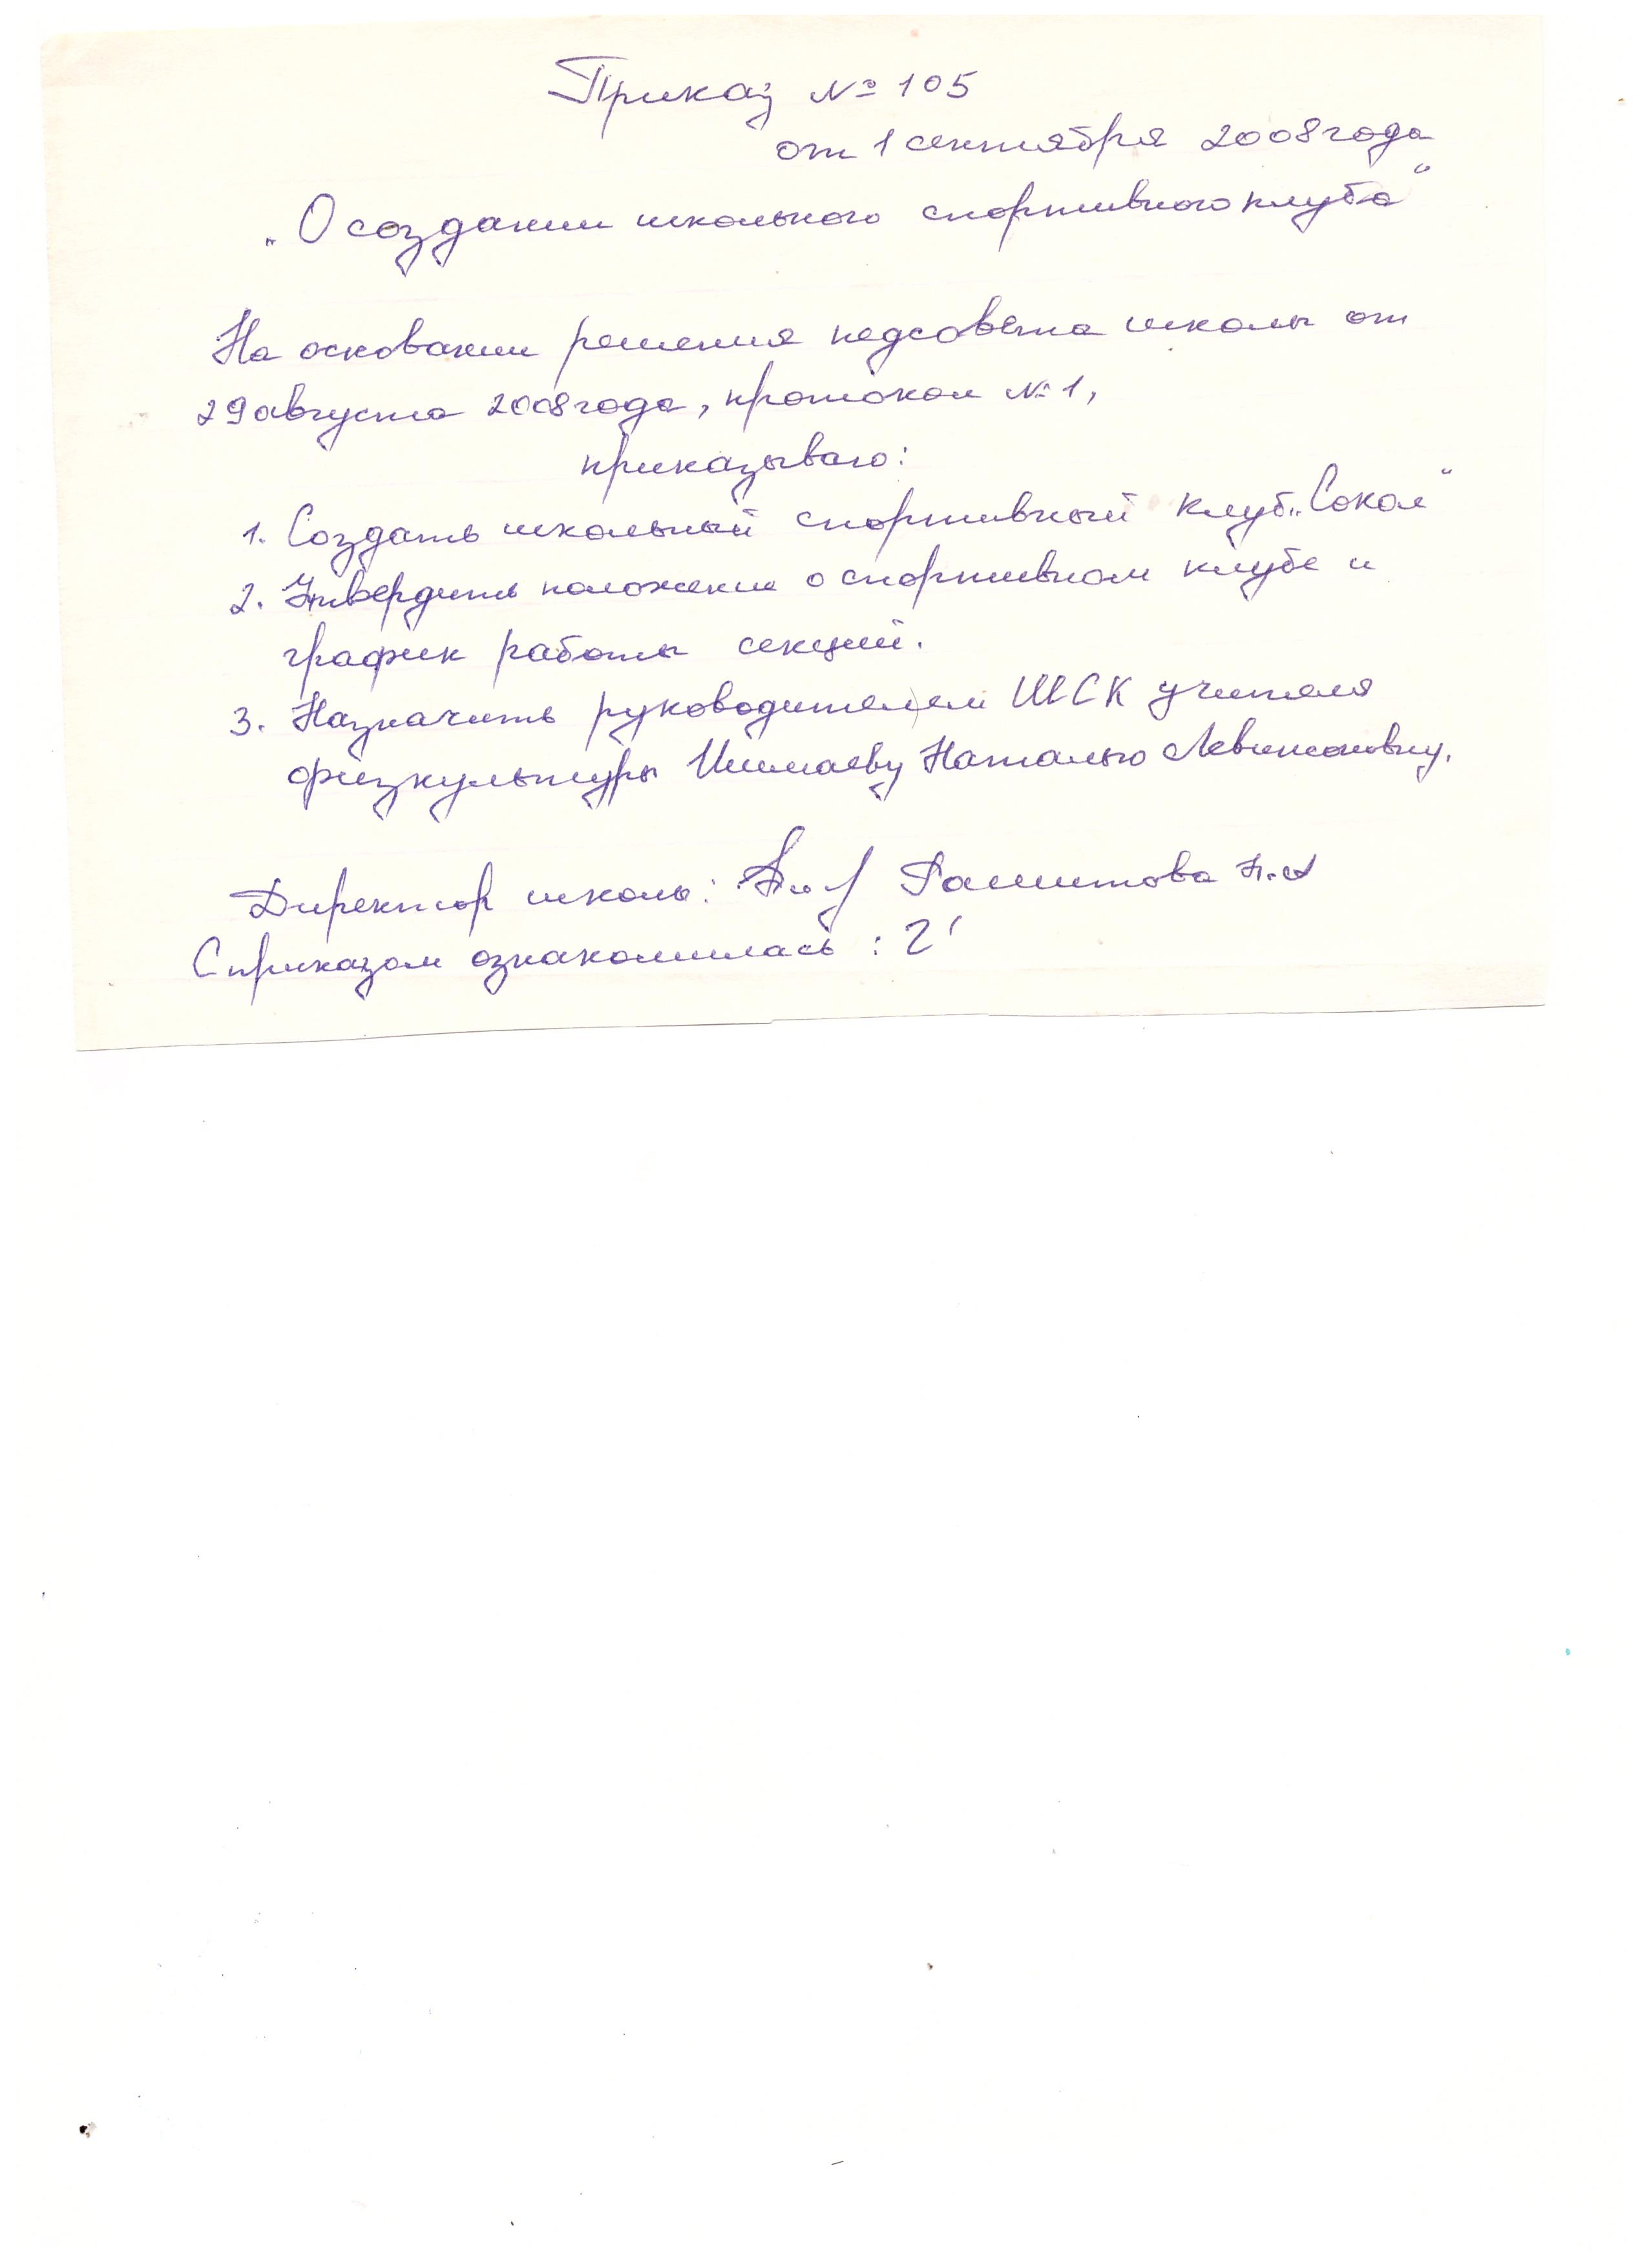 Приказ № 105
от 1 сентября 2008 года
„О создании школьного спортивного клуба“
На основании решения педсовета школы от
29 августа 2008 года, протокол № 1,
приказываю:
1. Создать школьный спортивный клуб „Сокол“
2. Утвердить положение о спортивном клубе и
график работы секций.
3. Назначить руководителем ШСК учителя
физкультуры Наталью
Директор школы:
С приказом ознакомилась: